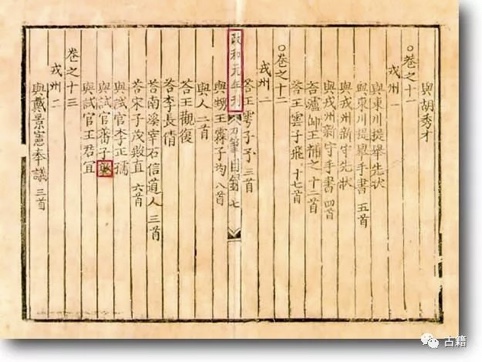 與胡秀才
○卷之十一
戎州一
與東川提舉先狀
與東川提舉手書 五首
與戎州新守先狀
與戎州新守手書 四首
答瀘帥王補之 十二首
答王雲子飛 十七首
○卷之十二
戎州二
答王子予 三首
政和元年刊 刀筆目錄 七
與王霖子均 八首
與人 二首
答王觀復
答李長倩
答南溪宰石信道人 三首
答宋子茂殿直 六首
與試官李正孺
與試官子塾
與試官王君宜
卷之十三
戎州
與戴景憲奉議 三首
古籍